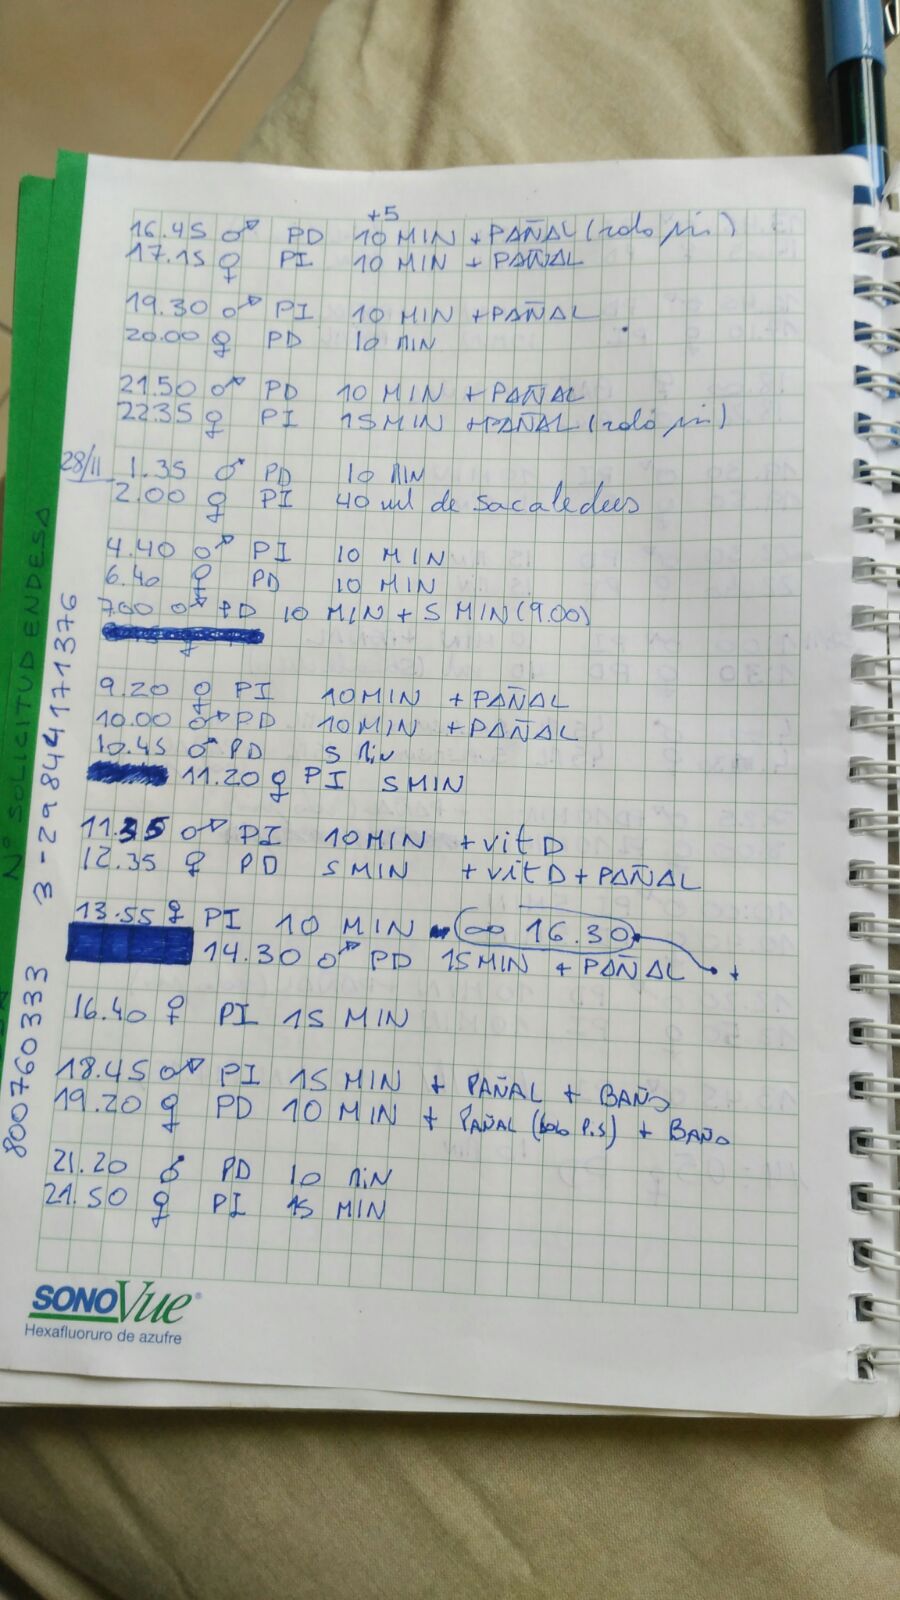 +5
16.45 ♂ PD 10 MIN + PAÑAL (solo pis)
17.15 ♀ PI 10 MIN + PAÑAL
19.30 ♂ PI 10 MIN + PAÑAL
20.00 ♀ PD 10 MIN
21.50 ♂ PD 10 MIN + PAÑAL
22.35 ♀ PI 15 MIN + PAÑAL (solo pis)
28/11 1.35 ♂ PD 10 MIN
2.00 ♀ PI 40 ml de sacaleches
4.40 ♂ PI 10 MIN
6.40 ♀ PD 10 MIN
7.00 ♂ PD 10 MIN + 5 MIN (9.00)
9.20 ♀ PI 10 MIN + PAÑAL
10.00 ♂ PD 10 MIN + PAÑAL
10.45 ♂ PD 5 Min
11.20 ♀ PI 5 MIN
11.35 ♂ PI 10 MIN + vit D
12.35 ♀ PD 5 MIN + vit D + PAÑAL
13.55 ♀ PI 10 MIN - 16.30
14.30 ♂ PD 15 MIN + PAÑAL +
16.40 ♀ PI 15 MIN
18.45 ♂ PI 15 MIN + PAÑAL + BAÑO
19.20 ♀ PD 10 MIN + PAÑAL (solo P.S) + BAÑO
21.20 ♂ PD 10 MIN
21.50 ♀ PI 15 MIN
Nº SOLICITUD ENDESA
800760333 3-29844171376
SONOVue®
Hexafluoruro de azufre